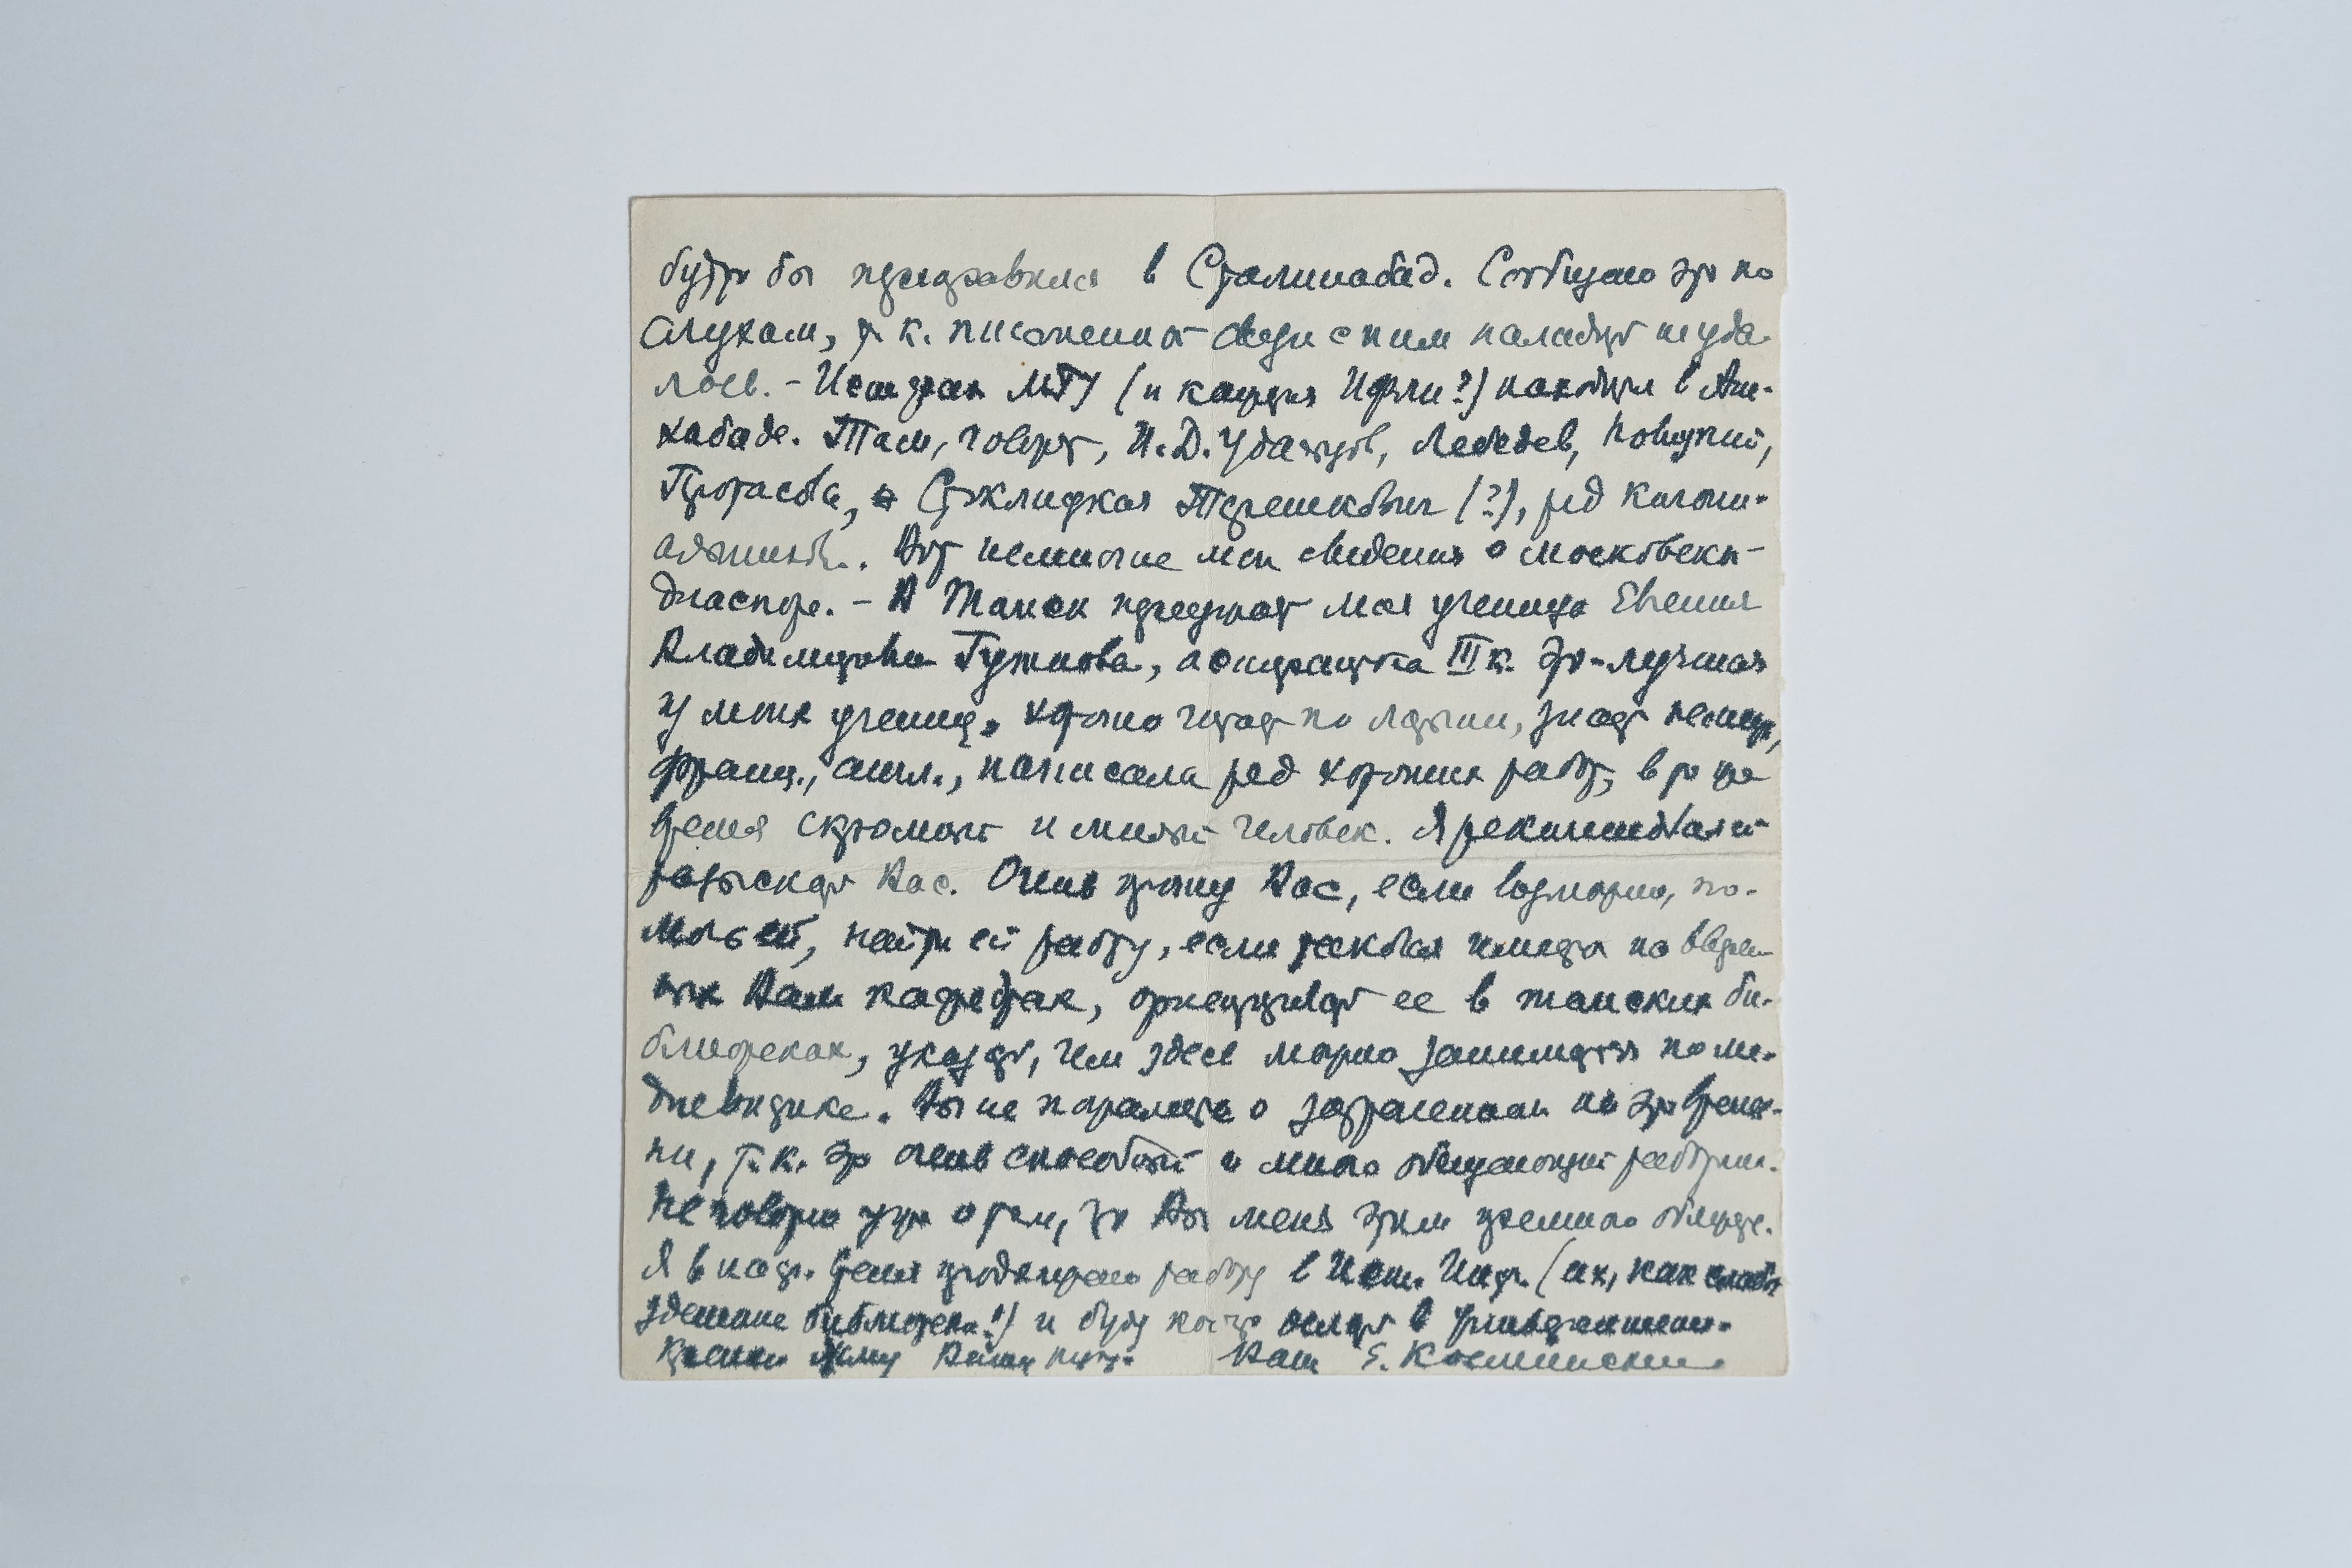 будто бы переправился в Сталинабад. Сообщаю это по
слухам, т. к. письменной связи с ним наладить не уда-
лось. – Истфак МГУ (и кажется Ифли?) находится в Аш-
хабаде. Там, говорят, И. Д. Удальцов, Лебедев, Новицкий,
Протасова, Стоклицкая Терешкович (?), ряд
Вот немногие мои сведения о московской
диаспоре. – В Томск приезжает моя ученица Евгения
Владимировна Гутнова, аспирантка III к. Это – лучшая
у меня ученица, хорошо читает по латыни, знает немецк.,
франц., англ., написала ряд хороших работ, в то же
время скромный и милый человек. Я рекомендовал ей
разыскать Вас. Очень прошу Вас, если возможно, по-
мочь ей, найти ей работу, если таковая имеется на вверен-
ных Вам кафедрах, ориентировать ее в томских би-
блиотеках, указать, чем здесь можно заниматься по ме-
диевистике. Вы не пожалеете о затраченном на это време-
ни, т. к. это очень способный и много обещающий работник.
Не говорю уже о том, что Вы меня этим премного обяжете.
Я в наст. время продолжаю работу в Ист. Инст. (ах, как слабы
здешние библиотеки!) и буду кое-что читать в Университете.
Крепко жму Вашу руку. Ваш Е. Косминский.